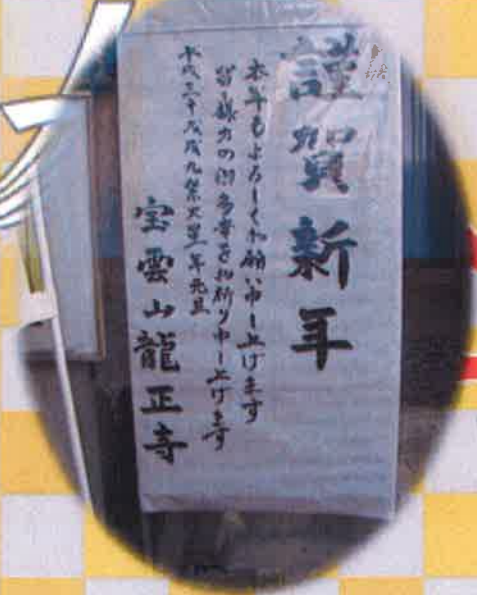 謹賀新年
本年もよろしくお願い申し上げます
皆様方の御多幸をお祈り申し上げます
平成三十戊戌九紫火星年元旦
宝雲山龍正寺